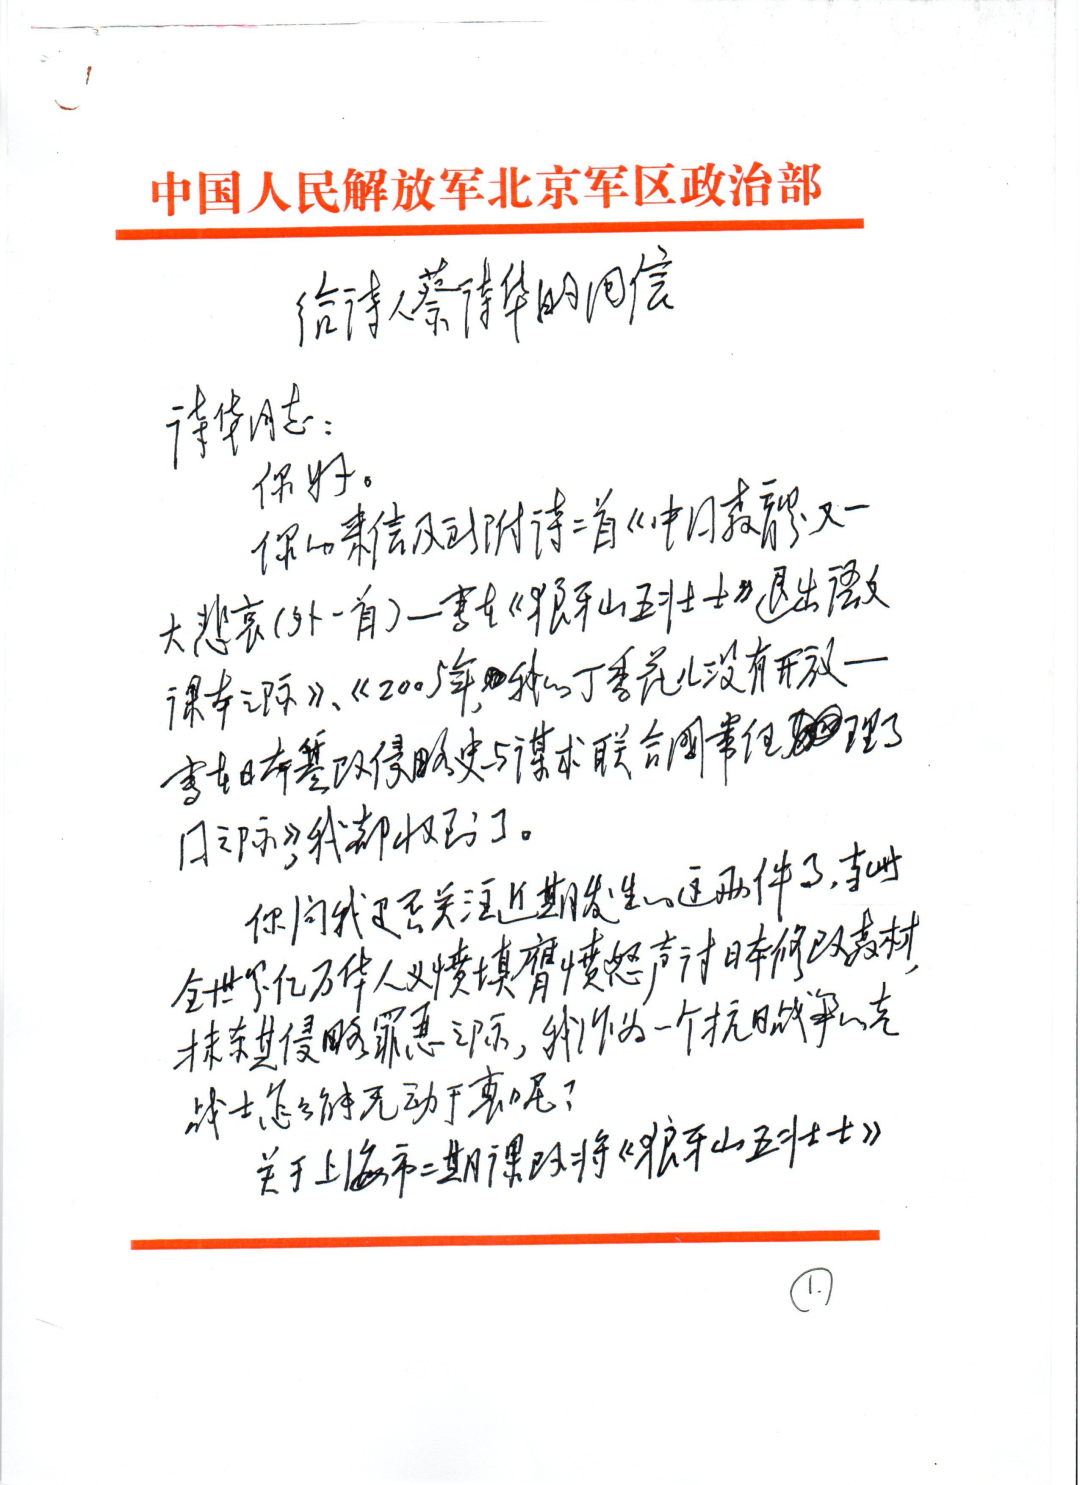 中国人民解放军北京军区政治部
给诗人蔡诗华的回信
诗华同志：
你好。
你的来信及所附诗二首《中日教育又一
大悲哀(外一首)—写在《狼牙山五壮士》退出语文
课本之际》、《2005年,我的丁香花儿没有开放—
写在日本篡改侵略史与谋求联合国常任理事
国之际》,我都收到了。
你问我是否关注近期发生的这两件事,在此
全世界亿万华人义愤填膺愤怒声讨日本修改教材,
抹杀其侵略罪恶之际，我作为一个抗日战争的老
战士,怎么能无动于衷呢?
关于上海市二期课改将《狼牙山五壮士》
1.